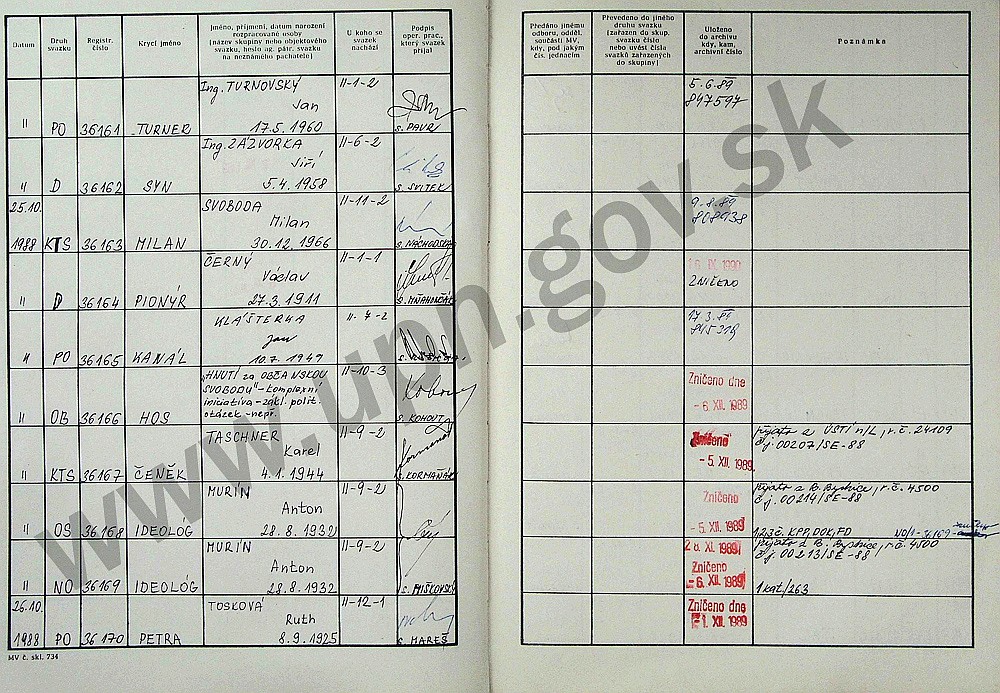 Datum
Druh svazku
Registr. číslo
Krycí jméno
Jméno, příjmení, datum narození
rozpracované osoby
(název skupiny nebo objektového
svazku, heslo ag. pátr. svazku
na neznámého pachatele)
U koho se
svazek
nachází
Podpis
oper. prac.,
který svazek
přijal
Předáno jinému
odboru, odděl.
součásti MV,
kdy, pod jakým
čís. jednacím
Převedeno do jiného
druhu svazku
(zařazen do skup.
svazku číslo
nebo uvést čísla
svazků zařazených
do skupiny)
Uloženo
do archivu
kdy, kam,
archivní číslo
Poznámka
Ing. TURNOVSKÝ II-1-2 5.6.89
Jan 847597
" PO 36161 TURNER 17.5.1960 s. PAVR
Ing. ZÁZVORKA II-6-2
Jiří
" D 36162 SYN 5.4.1958 s. SVITEK
25.10. SVOBODA II-11-2 9.8.89
Milan 808938
1988 KTS 36163 MILAN 30.12.1966 s. NÁCHODSKÝ
ČERNÝ II-1-1 IX. 1990
Václav ZNIČENO
" D 36164 PIONÝR 27.3.1911
KLÁŠTERKA II-7-2
Jan
" PO 36165 KANÁL 10.7.1949
"HNUTÍ za OBČANSKOU II-10-3 Zničeno dne
SVOBODU"-komplexní
iniciativa-zákl. polit. - 6. XII. 1989
" OB 36166 HOS otázek-nepř. s. KOHOUT
TASCHNER II-9-2 Zničeno přijato z ÚSTÍ n/L, r.č. 24109
Karel čj. 00207/SE-88
" KTS 36167 ČENĚK 4.1.1944 s. KORMAŇÁK - 5. XII. 1989
MURÍN II-9-2 Zničeno přijato z B. Bystrice, r.č. 4500
Anton čj. 00214/SE-88
" OS 36168 IDEOLOG 28.8.1932 - 5. XII. 1989
MURÍN II-9-2 28. XI. 1989 přijato z B. Bystrice, r.č. 4500
Anton Zničeno čj. 00213/SE-88
" NO 36169 IDEOLÓG 28.8.1932 s. MIŠKOVSKÝ - 6. XII. 1989 1 kat/263
26.10. TOSKOVÁ II-12-1 Zničeno dne
Ruth
1988 PO 36170 PETRA 8.9.1925 s. MAREŠ 1. XII. 1989
MV č. skl. 734
www.upn.gov.sk